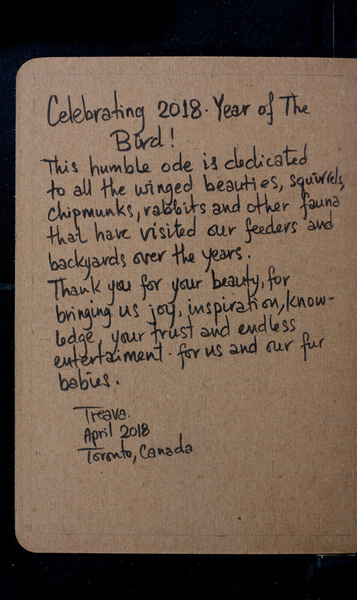 Celebrating 2018. Year of The
Bird!
This humble ode is dedicated
to all the winged beauties, squirrels,
chipmunks, rabbits and other fauna
that have visited our feeders and
backyards over the years.
Thank you for your beauty, for
bringing us joy, inspiration, know-
ledge, your trust and endless
entertaiment - for us and our fur
babies.
Treava.
April 2018
Toronto, Canada